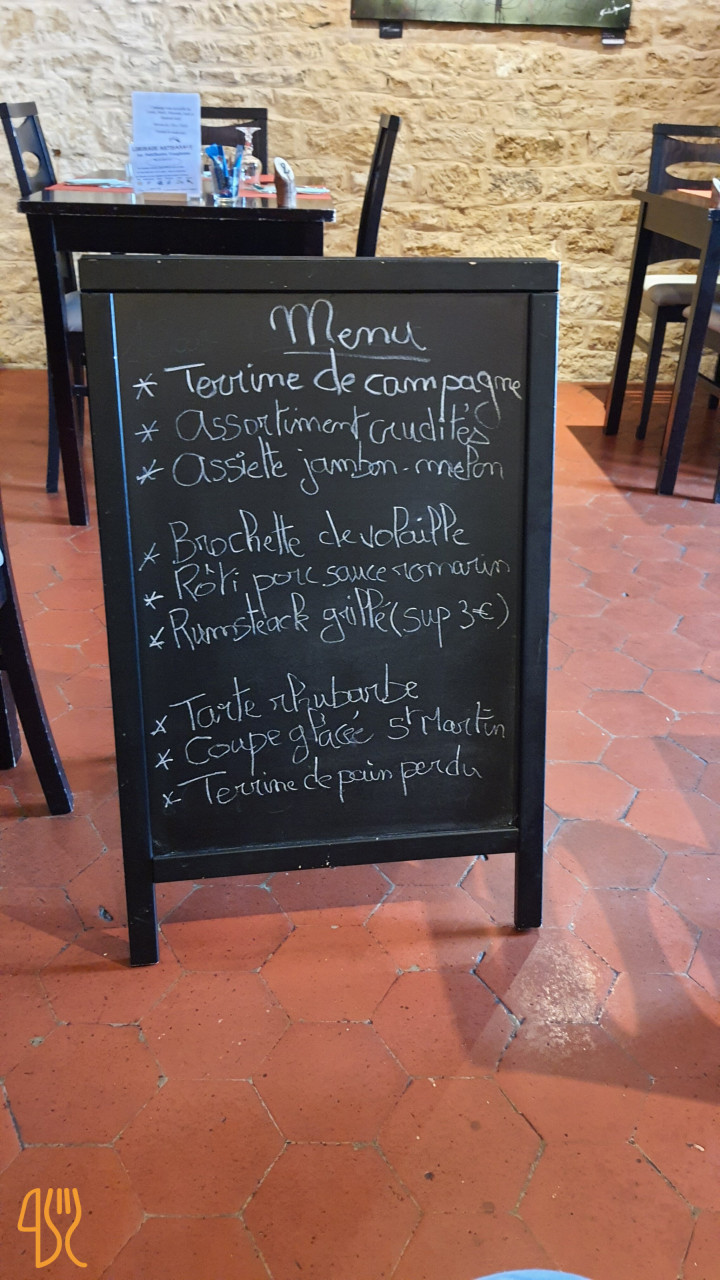 Menu
* Terrine de campagne
* Assortiment crudités
* Assiette jambon-melon
* Brochette de volaille
* Rôti porc sauce romarin
* Rumsteack grillé (sup 3€)
* Tarte rhubarbe
* Coupe glacée St Martin
* Terrine de pain perdu